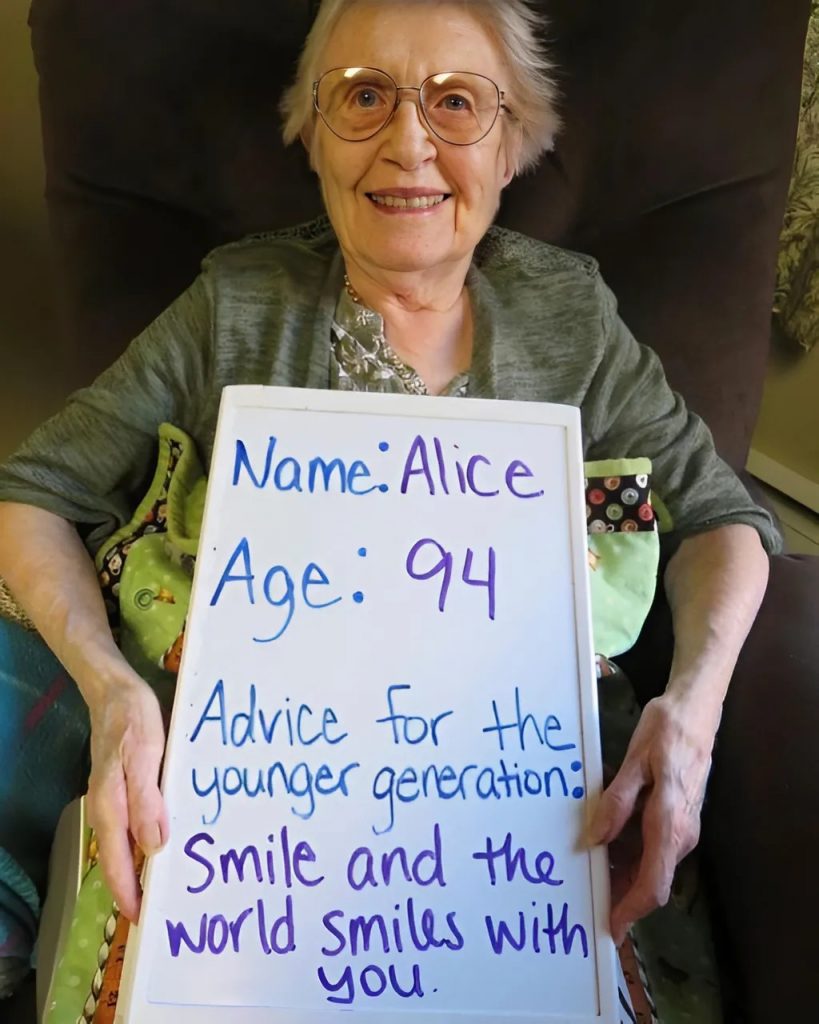 Name: Alice
Age: 94
Advice for the
younger generation:
Smile and the
world smiles with
you.